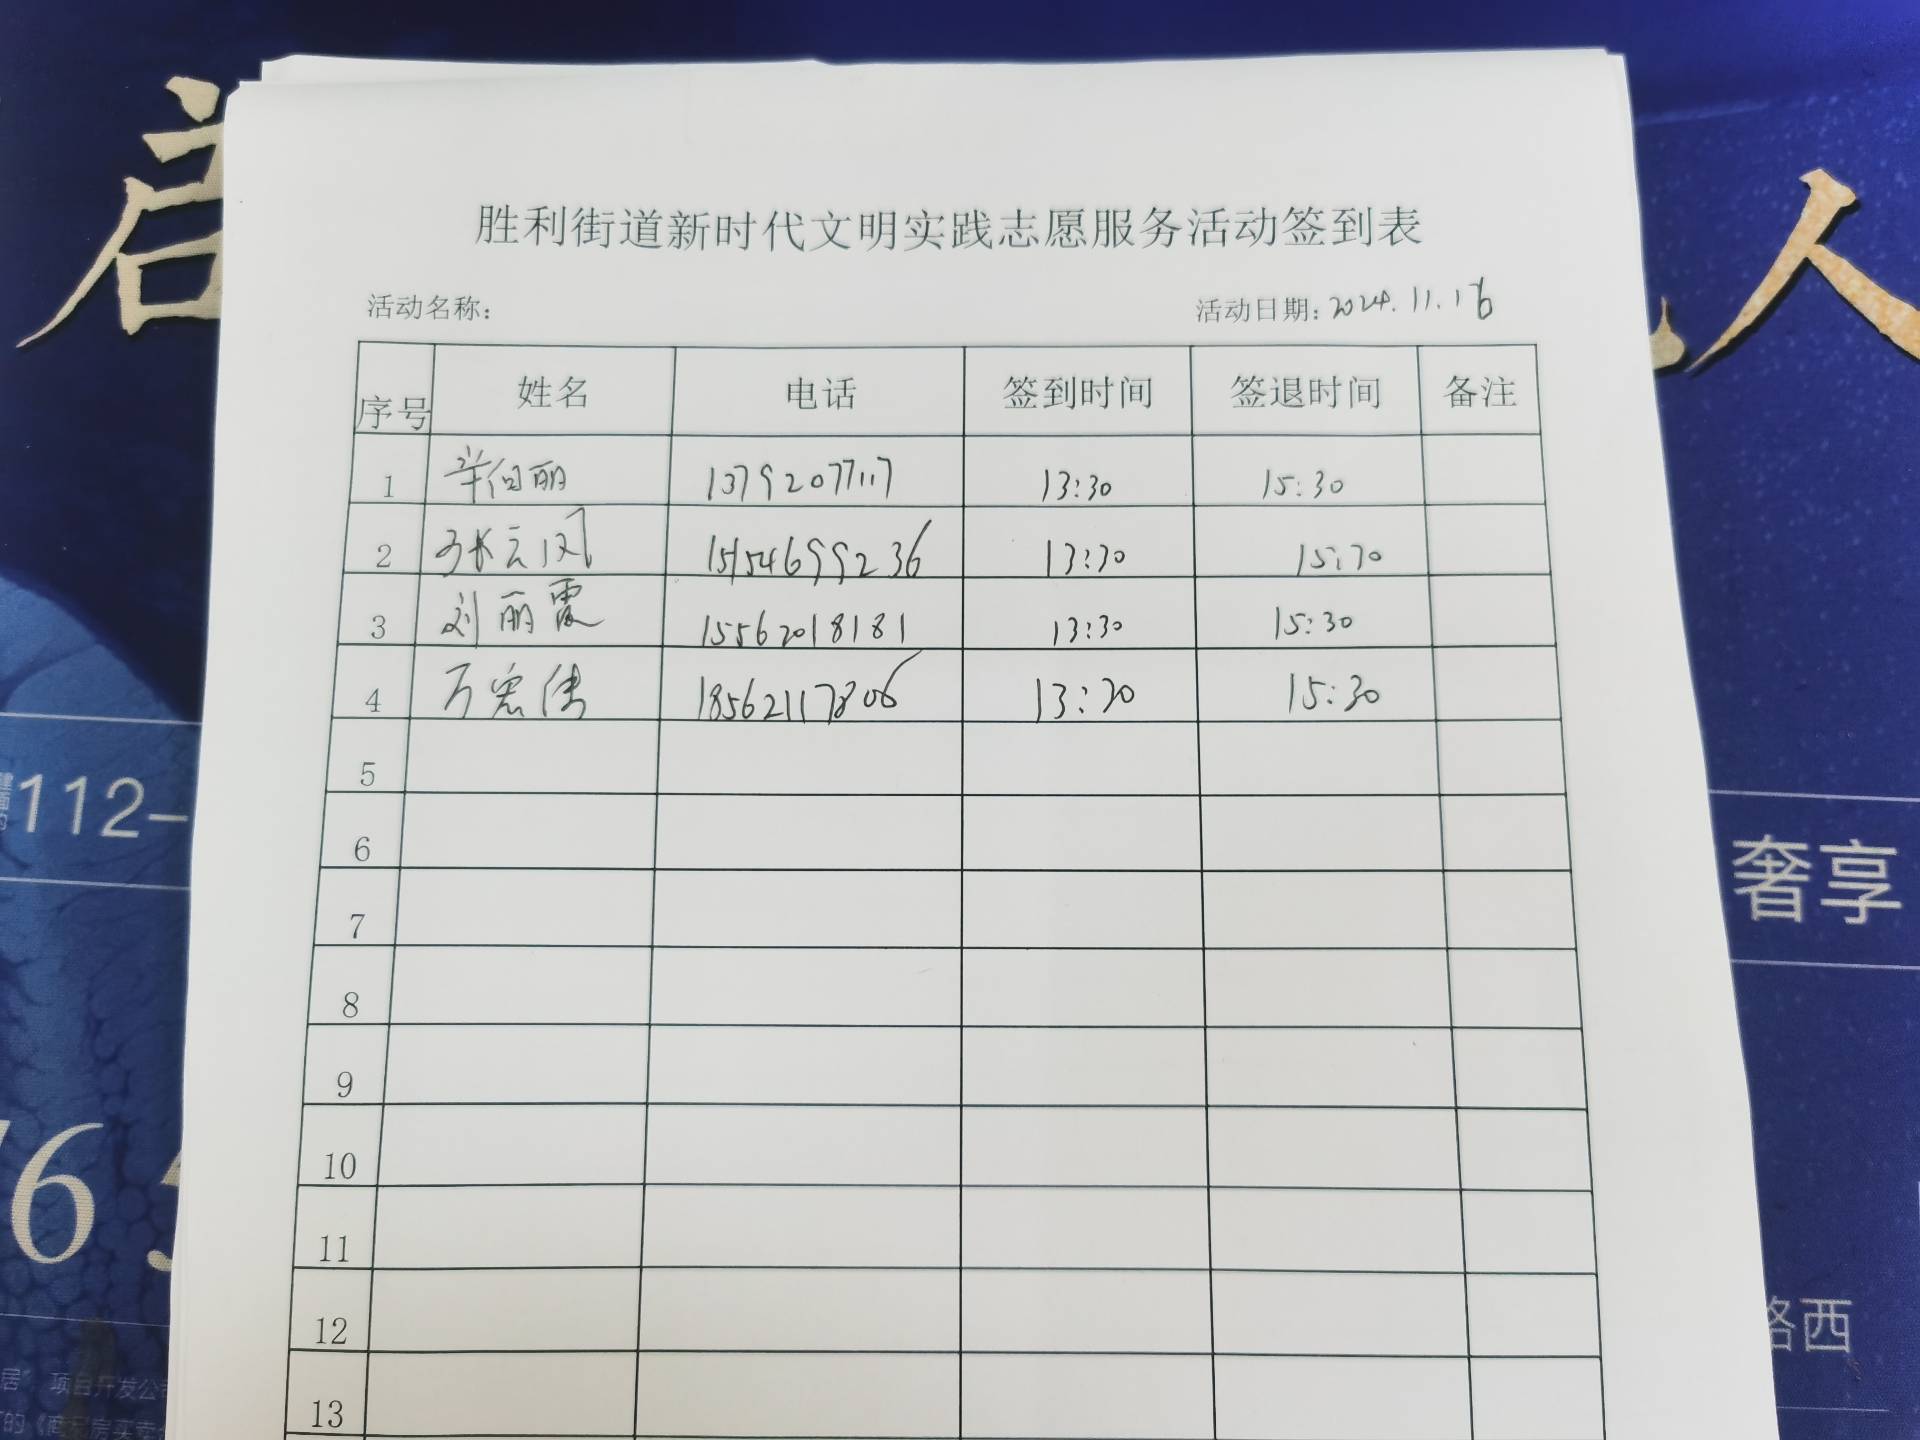 启
人
胜利街道新时代文明实践志愿服务活动签到表
活动名称: 活动日期: 2024.11.16
序号 姓名 电话 签到时间 签退时间 备注
1 辛向丽 13792077117 13:30 15:30
2 张云凤 15154699236 13:30 15:30
3 刘丽霞 15562018181 13:30 15:30
4 万宏倩 18562117806 13:30 15:30
5
6
7
8
9
10
11
12
13
建面约112-
奢享
路西
项目开发公